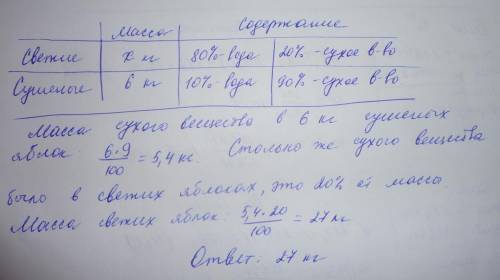 Масса Содержание
Свежие х кг 80%-вода 20%-сухое в-во
Сушеные 6 кг 10%-вода 90%-сухое в-во
Масса сухого вещества в 6 кг сушеных
яблок: 6·9/100 = 5,4 кг. Столько же сухого вещества
было в свежих яблоках, это 20% её массы
Масса свежих яблок: 5,4·20/100 = 27 кг
Ответ: 27 кг